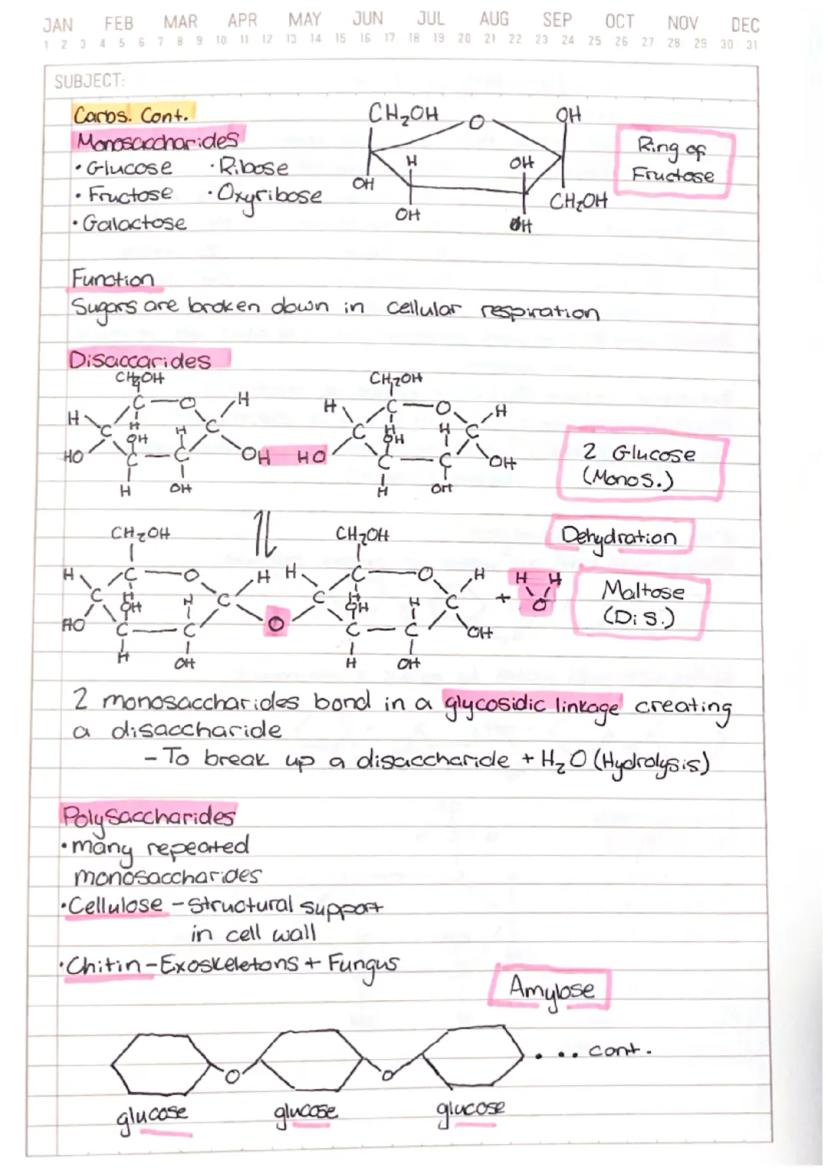 JAN FEB MAR APR MAY JUN JUL AUG SEP OCT NOV DEC
1 2 3 4 5 6 7 8 9 10 11 12 13 14 15 16 17 18 19 20 21 22 23 24 25 26 27 28 29 30 31
SUBJECT:
Carbs. Cont.
Monosaccharides
• Glucose • Ribose
• Fructose • Oxyribose
• Galactose
CH2OH O OH
H OH
OH
OH OH CH2OH
Ring of
Fructose
Function
Sugars are broken down in cellular respiration
Disaccarides
CH2OH CH2OH
C O H H C O H
H C H OH H C C H OH H C
HO C C OH HO C C OH
H OH H OH
2 Glucose
(Monos.)
Dehydration
CH2OH CH2OH
H C O H H C O H + H H
C H OH H C C H OH H C O
HO C C O C C OH
H OH H OH
Maltose
(Dis.)
2 monosaccharides bond in a glycosidic linkage creating
a disaccharide
- To break up a disaccharide + H2O (Hydrolysis)
Polysaccharides
• many repeated
monosaccharides
• Cellulose - structural support
in cell wall
• Chitin - Exoskeletons + Fungus
Amylose
O O ... cont.
glucose glucose glucose